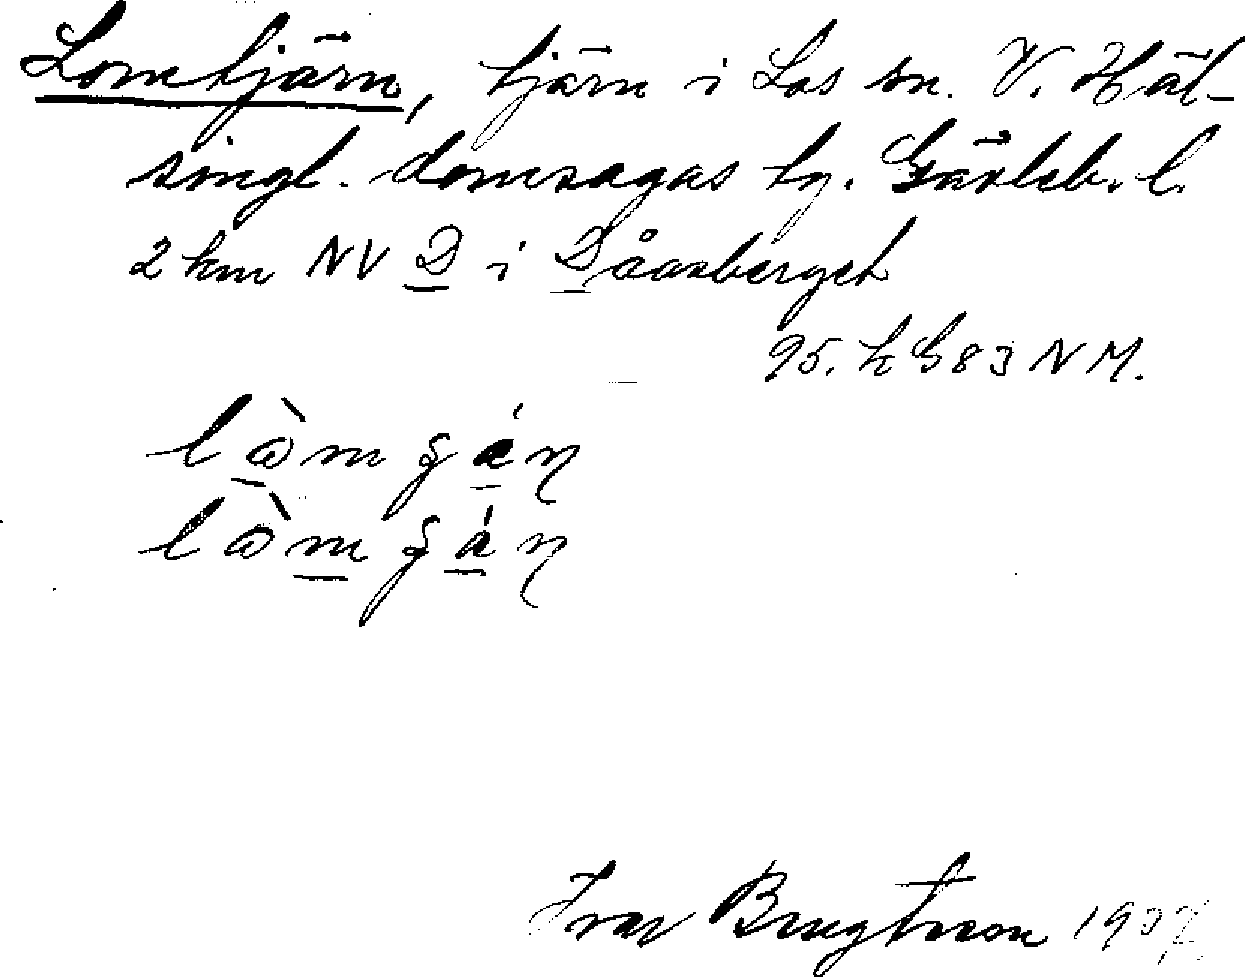 Lomtjärn, tjärn i Los sn. V. Häl-
singl. domsagas tg. Gävleb. l.
2 km NV D i Dåasberget
95. k G 83 NM.
Ivar Bengtsson 19